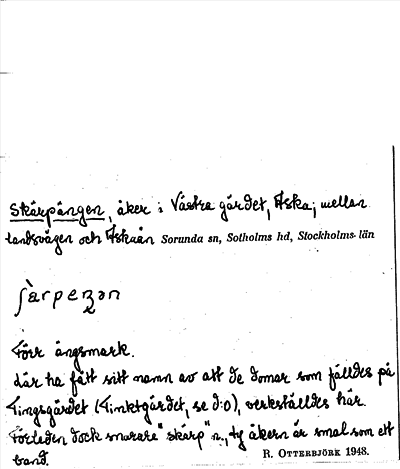 Skärpängen, åker i Västra gärdet, Aska; mellan
landsvägen och Askaån Sorunda sn, Sotholms hd, Stockholms län
ʃàrpeŋən
Förr ängsmark.
Lär ha fått sitt namn av att de domar som fälldes på
Tingsgärdet (Tinktgärdet, se d:o), verkställdes här.
Förleden dock snarare "skärp" n., ty åkern är smal som ett
band. R. OTTERBJÖRK 1948.